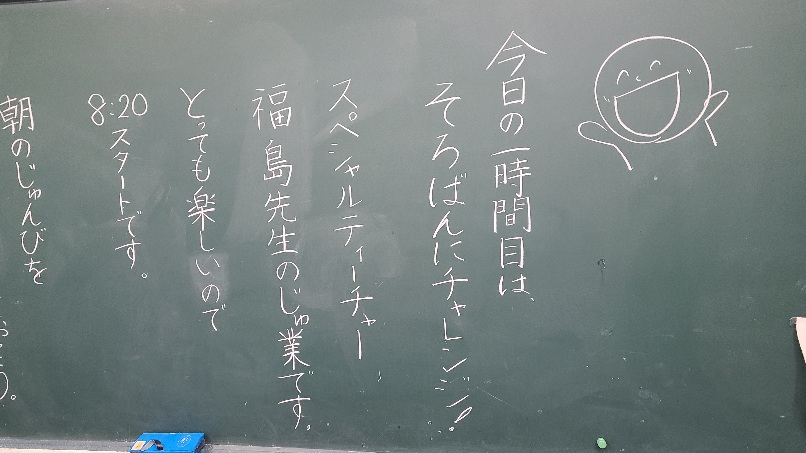 今日の一時間目は、
そろばんにチャレンジ!
スペシャルティーチャー
福島先生のじゅ業です。
とっても楽しいので
8:20スタートです。
朝のじゅんびを